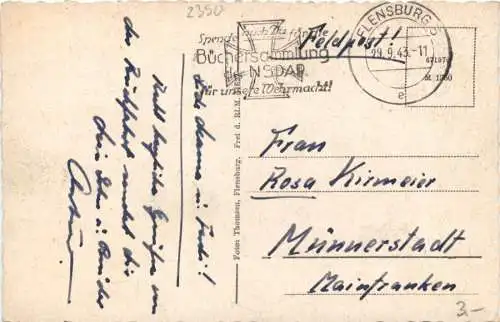 2350
FLENSBURG 2
29.9.43.-11
e
Spende auch Du für die
Büchersammlung
der NSDAP
für unsere Wehrmacht!
Feldpost!
671976
M 1060
Foto: Thomsen, Flensburg. Frei d. RLM.
Liebe Mama u. Judi!
Recht herzliche Grüße von
der Rückfahrt sendet dir
dein Sohn u. Bruder
Arthur
Frau
Rosa Kirmeier
Münnerstadt
Mainfranken
3.-